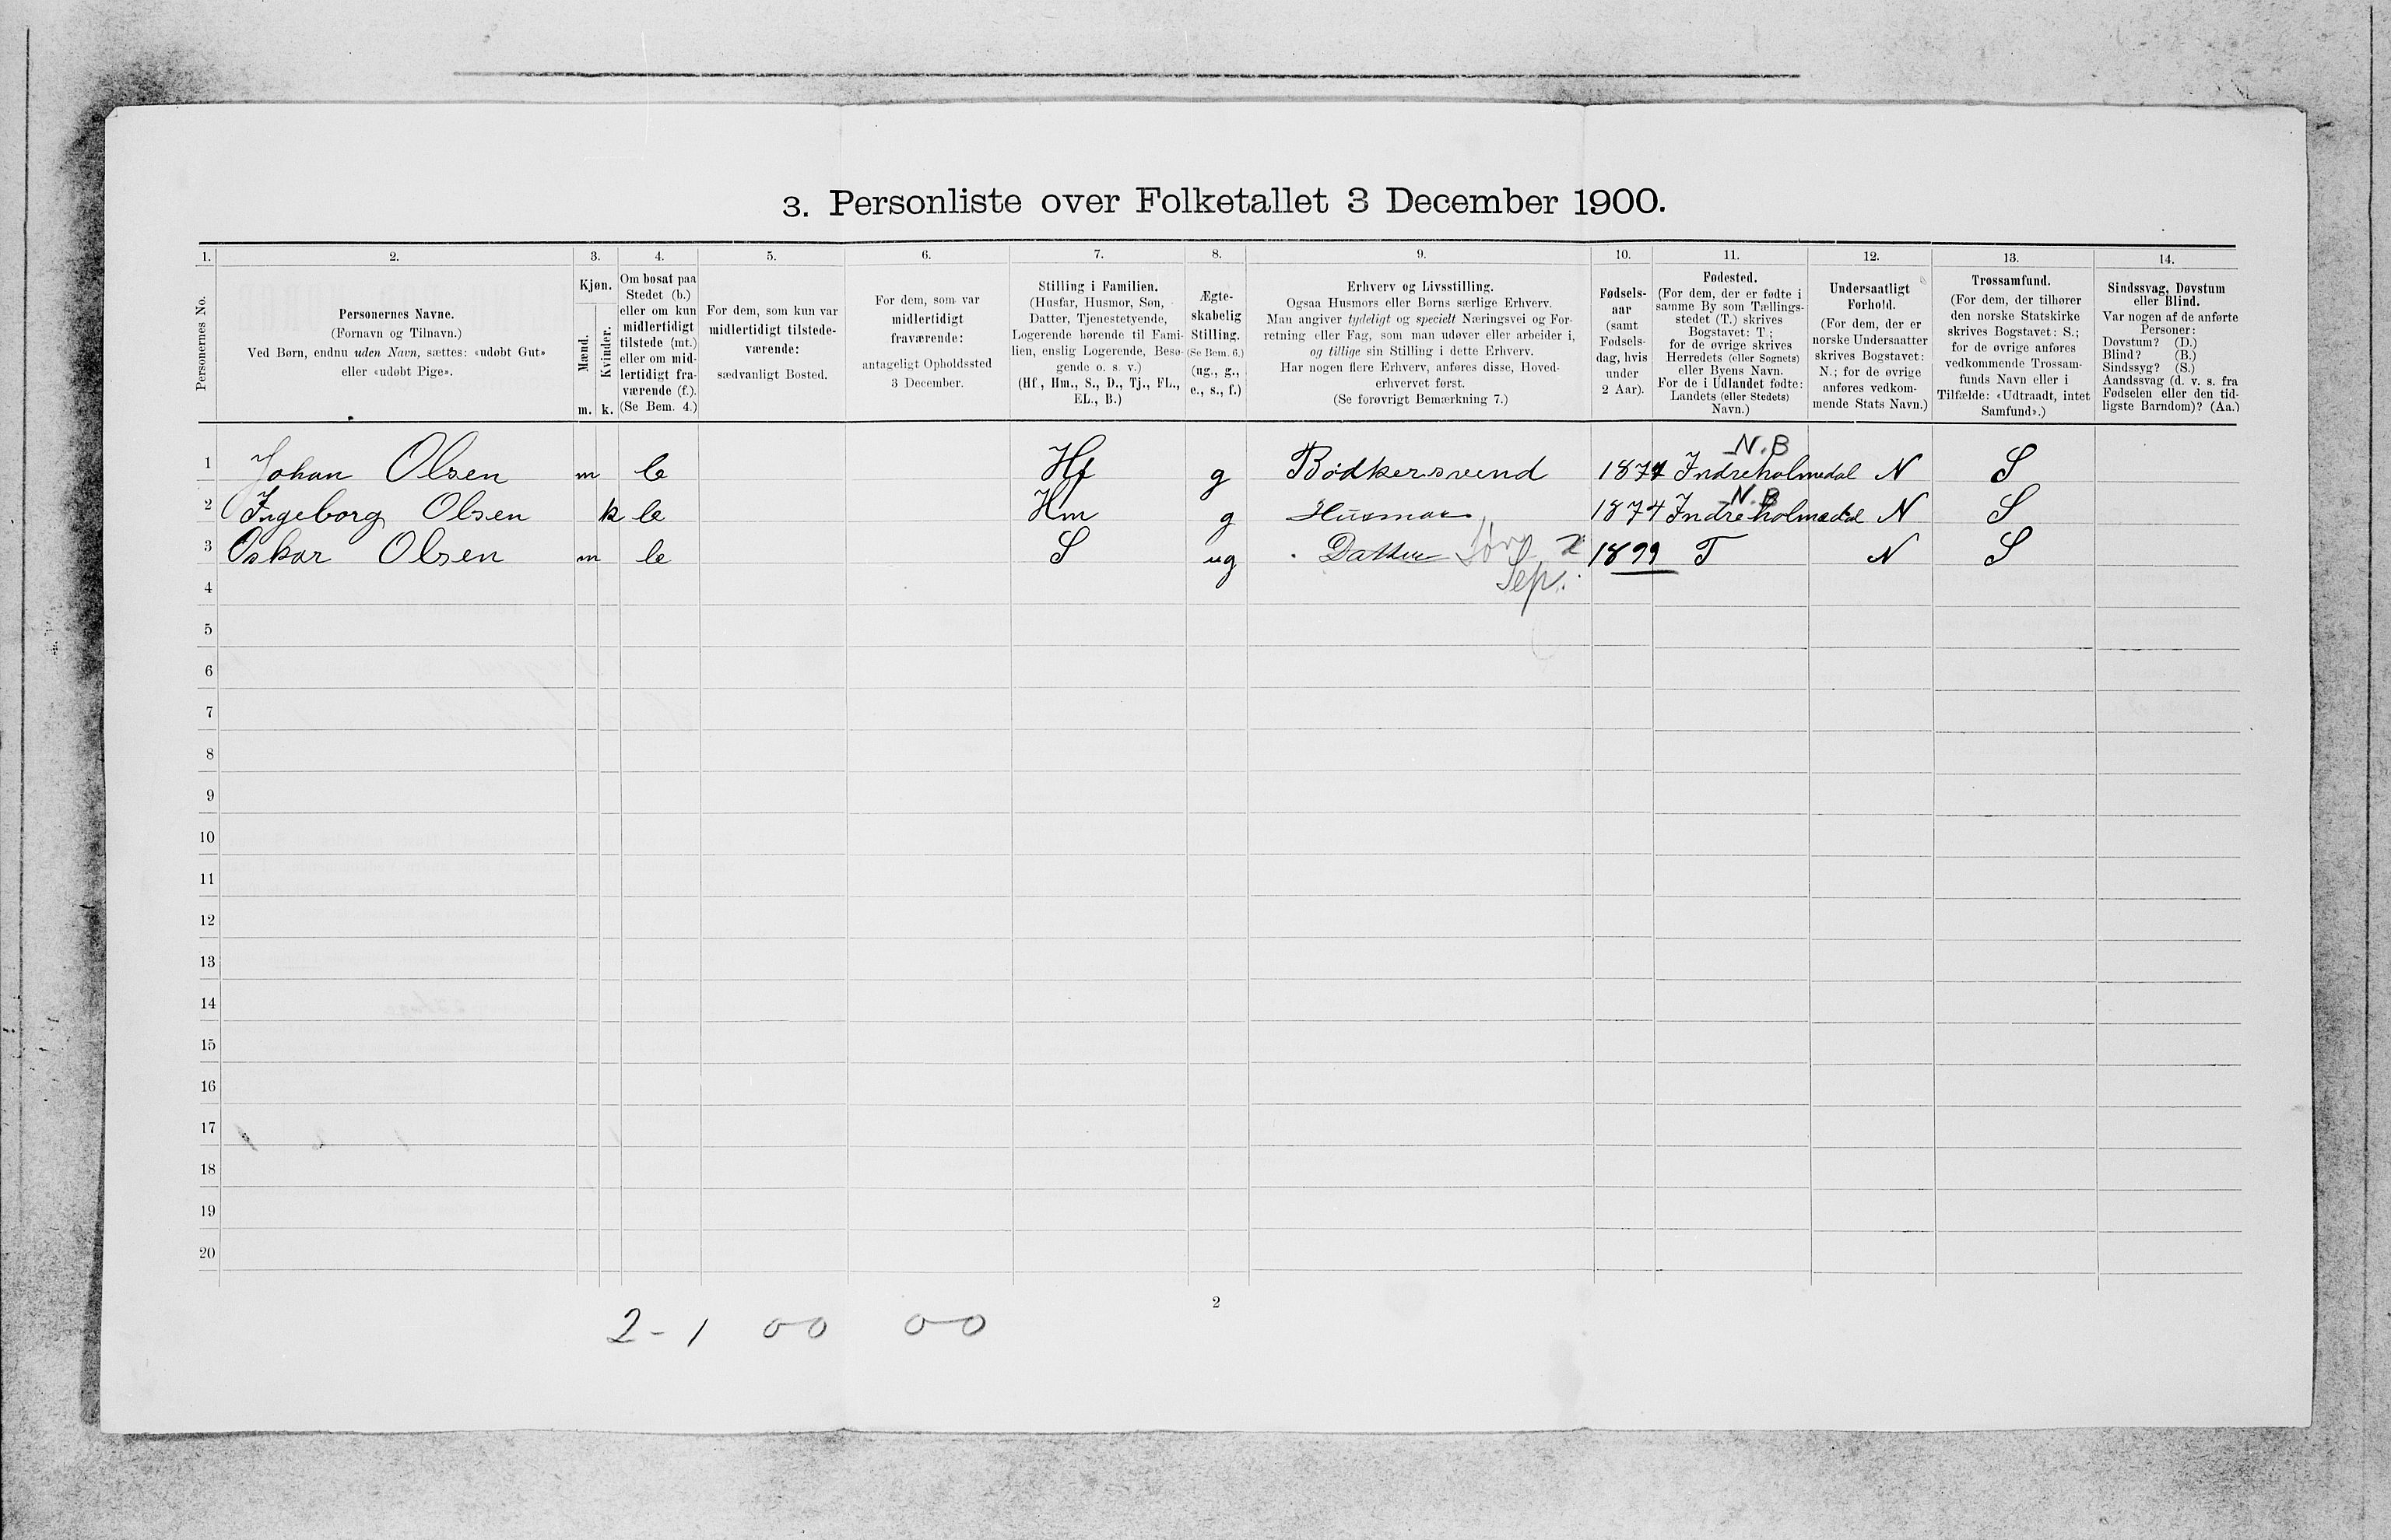 3. Personliste over Folketallet 3 December 1900.
1. 2. 3. 4. 5. 6. 7. 8. 9. 10. 11. 12. 13. 14.
Personernes No.
Personernes Navne.
(Fornavn og Tilnavn.)
Ved Børn, endnu uden Navn, sættes: «udøbt Gut»
eller «udøbt Pige».
Kjøn.
Mænd.
Kvinder.
m. k.
Om bosat paa
Stedet (b.)
eller om kun
midlertidigt
tilstede (mt.)
eller om mid-
lertidigt fra-
værende (f.).
(Se Bem. 4.)
For dem, som kun var
midlertidigt tilstede-
værende:
sædvanligt Bosted.
For dem, som var
midlertidigt
fraværende:
antageligt Opholdssted
3 December.
Stilling i Familien.
(Husfar, Husmor, Søn,
Datter, Tjenestetyende,
Logerende hørende til Fami-
lien, enslig Logerende, Besø-
gende o. s. v.)
(Hf., Hm., S., D., Tj., FL.,
EL., B.)
Ægte-
skabelig
Stilling.
(Se Bem. 6.)
(ug., g.,
e., s., f.)
Erhverv og Livsstilling.
Ogsaa Husmors eller Børns særlige Erhverv.
Man angiver tydeligt og specielt Næringsvei og For-
retning eller Fag, som man udøver eller arbeider i,
og tillige sin Stilling i dette Erhverv.
Har nogen flere Erhverv, anføres disse, Hoved-
erhvervet først.
(Se forøvrigt Bemærkning 7.)
Fødsels-
aar
(samt
Fødsels-
dag, hvis
under
2 Aar).
Fødested.
(For dem, der er fødte i
samme By som Tællings-
stedet (T.) skrives
Bogstavet: T;
for de øvrige skrives
Herredets (eller Sognets)
eller Byens Navn.
For de i Udlandet fødte:
Landets (eller Stedets)
Navn.)
Undersaatligt
Forhold.
(For dem, der er
norske Undersaatter
skrives Bogstavet:
N.; for de øvrige
anføres vedkom-
mende Stats Navn.)
Trossamfund.
(For dem, der tilhører
den norske Statskirke
skrives Bogstavet: S.;
for de øvrige anføres
vedkommende Trossam-
funds Navn eller i
Tilfælde: «Udtraadt, intet
Samfund».)
Sindssvag, Døvstum
eller Blind.
Var nogen af de anførte
Personer:
Døvstum? (D.)
Blind? (B.)
Sindssyg? (S.)
Aandssvag (d. v. s. fra
Fødselen eller den tid-
ligste Barndom)? (Aa.)
N.B
1 Johan Olsen m b Hf g Bødkersvend 1874 Indreholmedal N S
N.B
2 Ingeborg Olsen k b Hm g Husmor 1874 Indreholmedal N S
3 Oskar Olsen m b S ug Datter 1899 T N S
Sep.
4
5
6
7
8
9
10
11
12
13
14
15
16
17
18
19
20
2
2-1 00 00